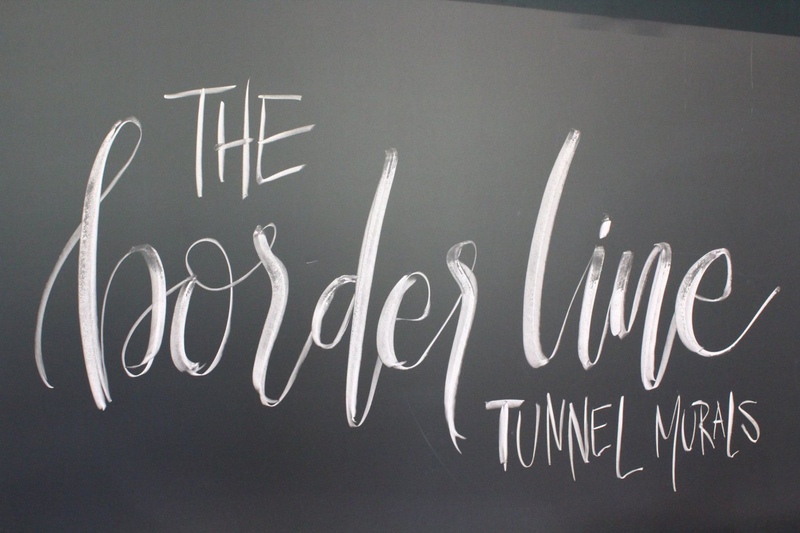 THE
border line
TUNNEL MURALS